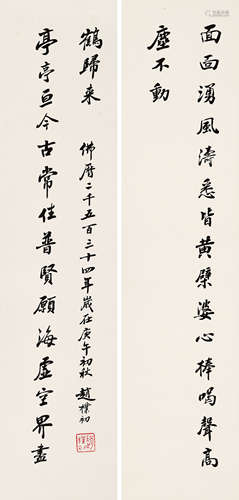 面面湧風濤悉皆黃檗婆心棒喝聲高
塵不動
亭亭亘今古常住普賢願海虛空界盡
鶴歸來
佛曆二千五百三十四年歲在庚午初秋 趙樸初